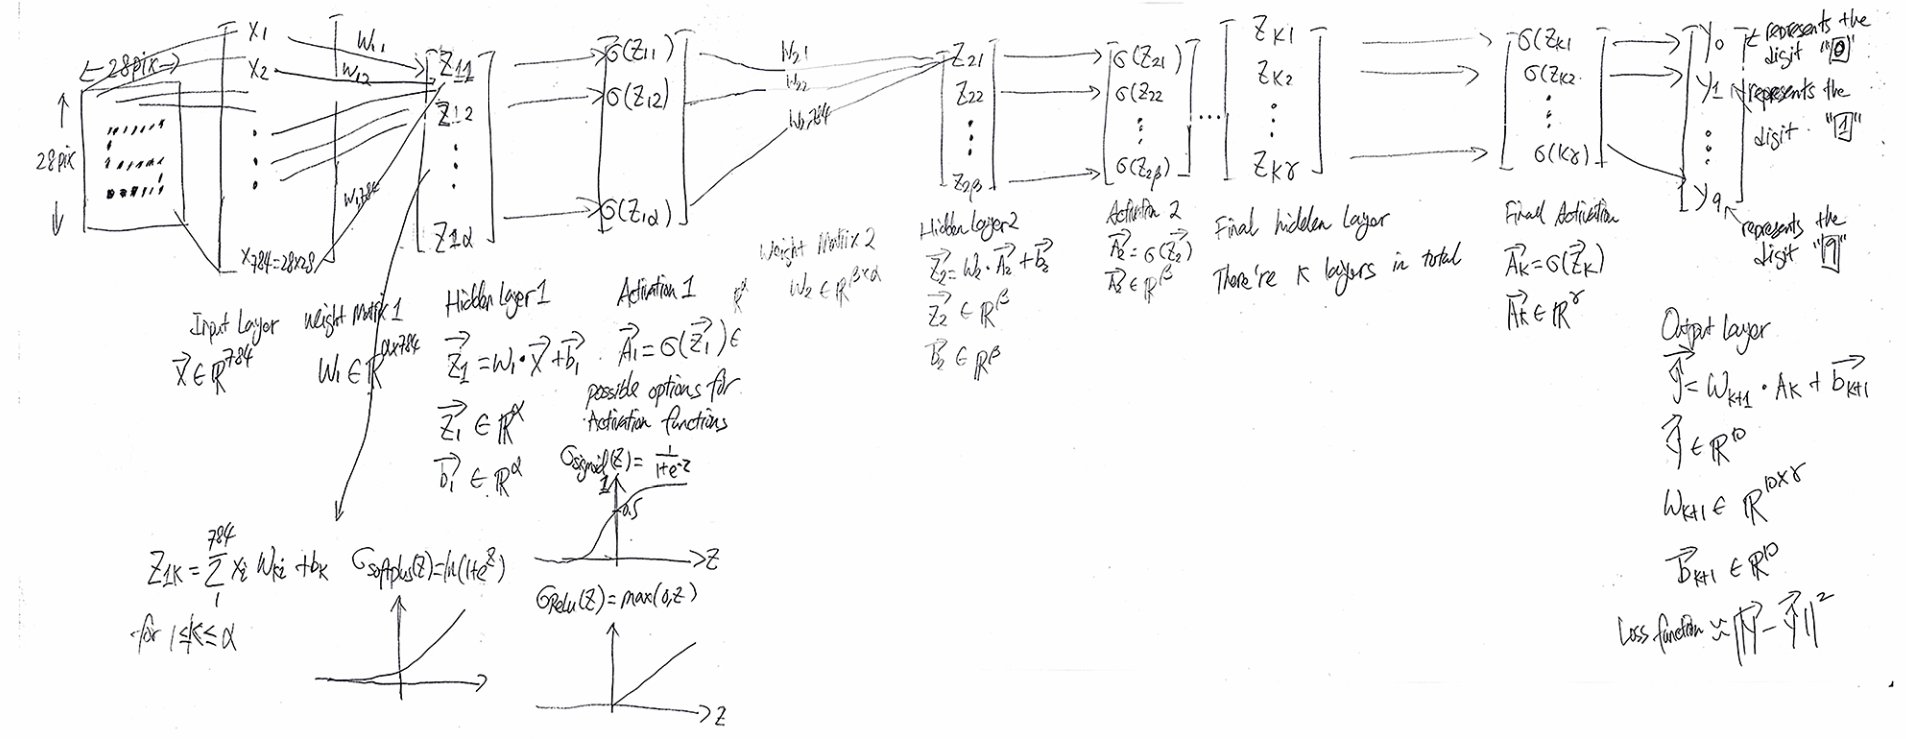 28pix
28pix
x1
x2
x784=28x28
W11
W12
W1,784
Z11
Z12
Z1α
σ(Z11)
σ(Z12)
σ(Z1α)
W21
W22
W2,784
Z21
Z22
Z2β
σ(Z21)
σ(Z22
σ(Z2β)
...
ZK1
ZK2
ZKγ
σ(ZK1
σ(ZK2
σ(Kγ)
y0
y1
y9
represents the
digit "0"
represents the
digit "1"
represents the
digit "9"
Input Layer
x ∈ R^784
Weight Matrix 1
W1 ∈ R^α×784
Hidden Layer 1
Z1 = W1 · X + b1
Z1 ∈ R^α
b1 ∈ R^α
Activation 1
A1 = σ(Z1) ∈ R^α
possible options for
Activation functions
σsigmoid(Z) = 1/(1+e^-z)
1
0.5
Z
σRelu(Z) = max(0,Z)
Z
σsoftplus(Z) = ln(1+e^z)
Z1K = Σ 784 1 xi Wki + bK
for 1≤K≤α
Weight Matrix 2
W2 ∈ R^β×α
Hidden Layer 2
Z2 = W2 · A2 + b2
Z2 ∈ R^β
b2 ∈ R^β
Activation 2
A2 = σ(Z2)
A2 ∈ R^β
Final hidden Layer
There're K layers in total
Final Activation
AK = σ(ZK)
AK ∈ R^γ
Output Layer
y = WK+1 · AK + bK+1
y ∈ R^10
WK+1 ∈ R^10×γ
bK+1 ∈ R^10
Loss function ≈ ||Y - y||^2